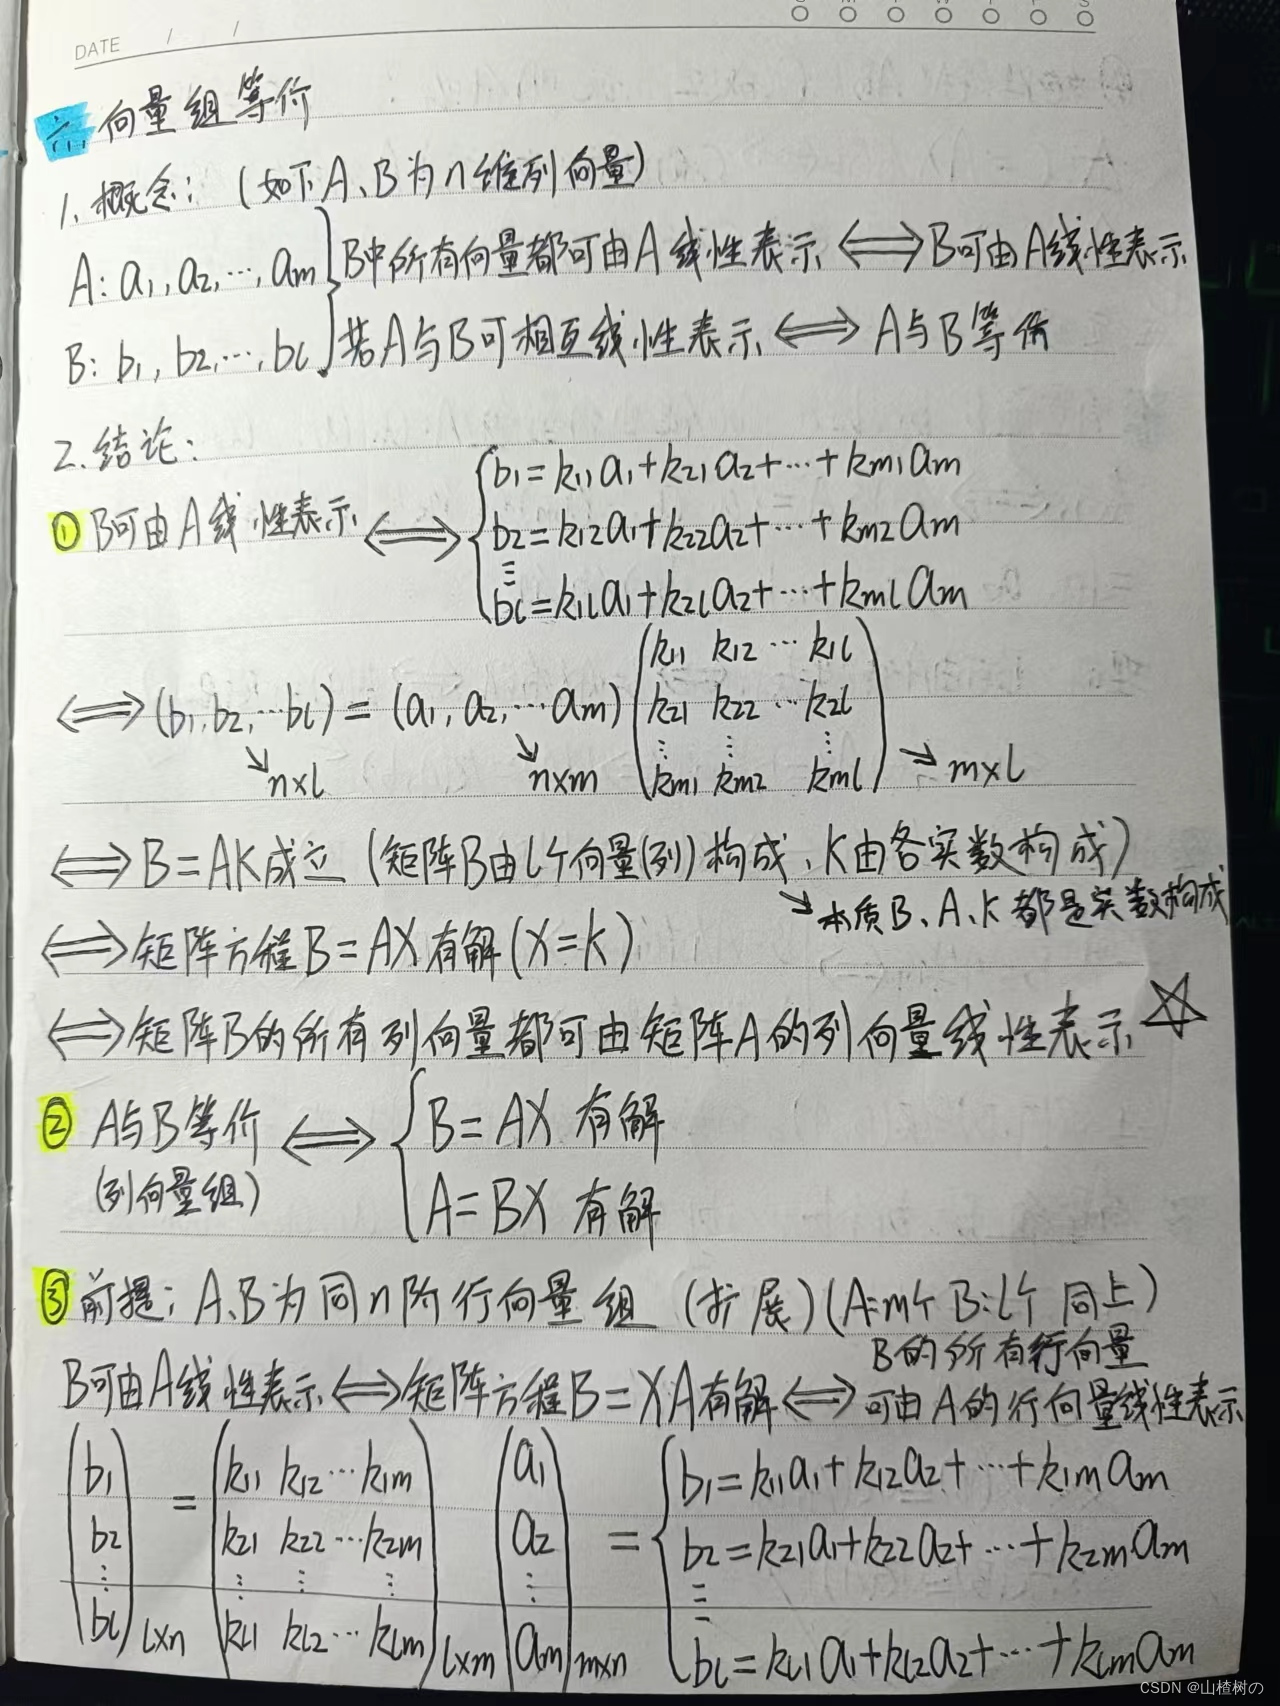 S M T W T F S
DATE / /
六 向量组等价
1. 概念：（如下A、B为n维列向量）
A: a₁, a₂, …, aₘ } B中所有向量都可由A线性表示 ⟺ B可由A线性表示
B: b₁, b₂, …, bₗ } 若A与B可相互线性表示 ⟺ A与B等价
2. 结论：
① B可由A线性表示 ⟺ { b₁ = k₁₁a₁ + k₂₁a₂ + … + kₘ₁aₘ
b₂ = k₁₂a₁ + k₂₂a₂ + … + kₘ₂aₘ
⋮
bₗ = k₁ₗa₁ + k₂ₗa₂ + … + kₘₗaₘ
⟺ (b₁, b₂, … bₗ) = (a₁, a₂, … aₘ) ( k₁₁ k₁₂ … k₁ₗ
k₂₁ k₂₂ … k₂ₗ
⋮ ⋮ ⋮
kₘ₁ kₘ₂ kₘₗ )
↘ n×l ↘ n×m → m×l
⟺ B = AK成立（矩阵B由l个向量(列)构成、K由各实数构成）
↘ 本质B、A、K都是实数构成
⟺ 矩阵方程B = AX有解（X = K）
⟺ 矩阵B的所有列向量都可由矩阵A的列向量线性表示 ☆
② A与B等价 ⟺ { B = AX 有解
（列向量组） A = BX 有解
③ 前提：A、B为同n阶行向量组（扩展）（A:m个 B:l个 同上）
B可由A线性表示 ⟺ 矩阵方程B = XA有解 ⟺ B的所有行向量
可由A的行向量线性表示
( b₁ ) = ( k₁₁ k₁₂ … k₁ₘ ) ( a₁ ) = { b₁ = k₁₁a₁ + k₁₂a₂ + … + k₁ₘaₘ
b₂ k₂₁ k₂₂ … k₂ₘ a₂ b₂ = k₂₁a₁ + k₂₂a₂ + … + k₂ₘaₘ
⋮ ⋮ ⋮ ⋮ ⋮ ⋮
bₗ l×n kₗ₁ kₗ₂ … kₗₘ l×m aₘ m×n bₗ = kₗ₁a₁ + kₗ₂a₂ + … + kₗₘaₘ
CSDN @山楂树の